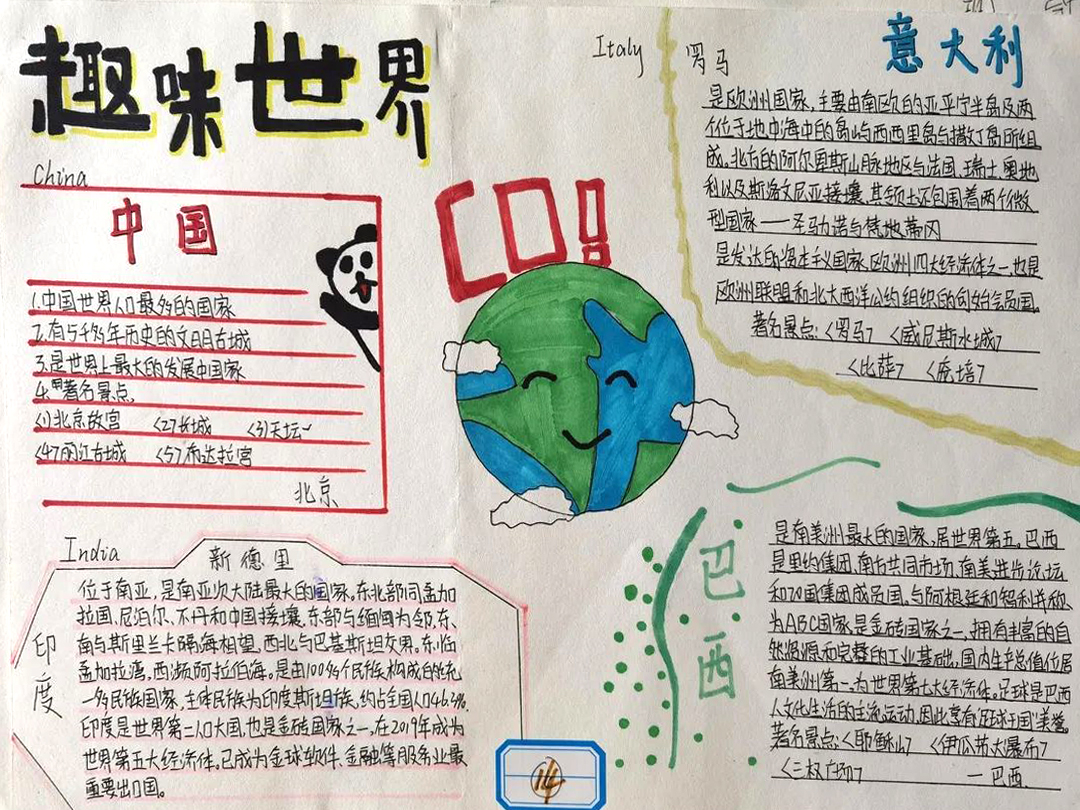 趣味世界
China
中国
1.中国世界人口最多的国家
2.有5千多年历史的文明古城
3.是世界上最大的发展中国家
4.著名景点
<1>北京故宫 <2>长城 <3>天坛
<4>丽江古城 <5>布达拉宫
北京
CO!
Italy 罗马
意大利
是欧洲国家,主要由南欧的亚平宁半岛及两
个位于地中海中的岛屿西西里岛与撒丁岛所组
成。北方的阿尔卑斯山脉地区与法国、瑞士、奥地
利以及斯洛文尼亚接壤,其领土还包围着两个微
型国家——圣马力诺与梵地蒂冈
是发达的资本主义国家,欧洲四大经济体之一,也是
欧洲联盟和北大西洋公约组织的创始会员国。
著名景点:<罗马> <威尼斯水城>
<比萨> <庞培>
India
新德里
印度
位于南亚,是南亚次大陆最大的国家。东北部同孟加
拉国、尼泊尔、不丹和中国接壤,东部与缅甸为邻,东、
南与斯里兰卡隔海相望,西北与巴基斯坦交界。东临
孟加拉湾,西濒阿拉伯海。是由100多个民族构成的统
一多民族国家,主体民族为印度斯坦族,约占全国人口46.3%。
印度是世界第二人口大国,也是金砖国家之一,在2019年成为
世界第五大经济体。已成为全球软件、金融等服务业最
重要出口国。
巴西
是南美洲最大的国家,居世界第五。巴西
是里约集团、南方共同市场、南美进步论坛
和20国集团成员国。与阿根廷和智利并称
为ABC国家,是金砖国家之一,拥有丰富的自
然资源和完整的工业基础,国内生产总值位居
南美洲第一,为世界第七大经济体。足球是巴西
人文化生活的主流运动,因此享有足球王国"美誉。
著名景点:<耶稣山> <伊瓜苏大瀑布>
<三权广场> —巴西